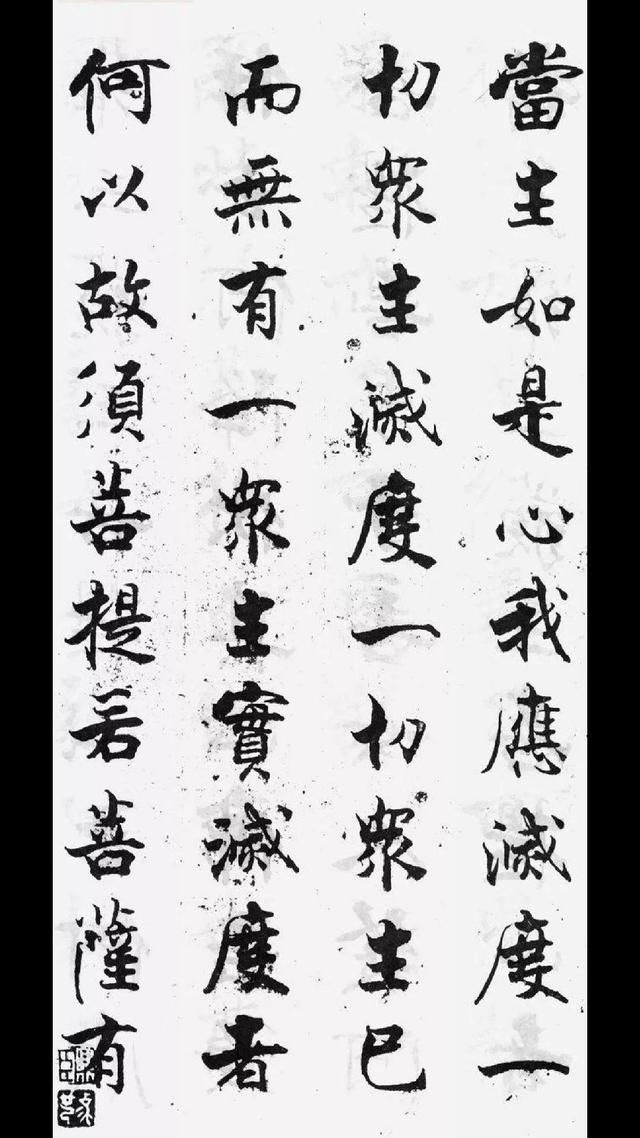 當生如是心我應滅度一
切衆生滅度一切衆生已
而無有一衆生實滅度者
何以故須菩提若菩薩有